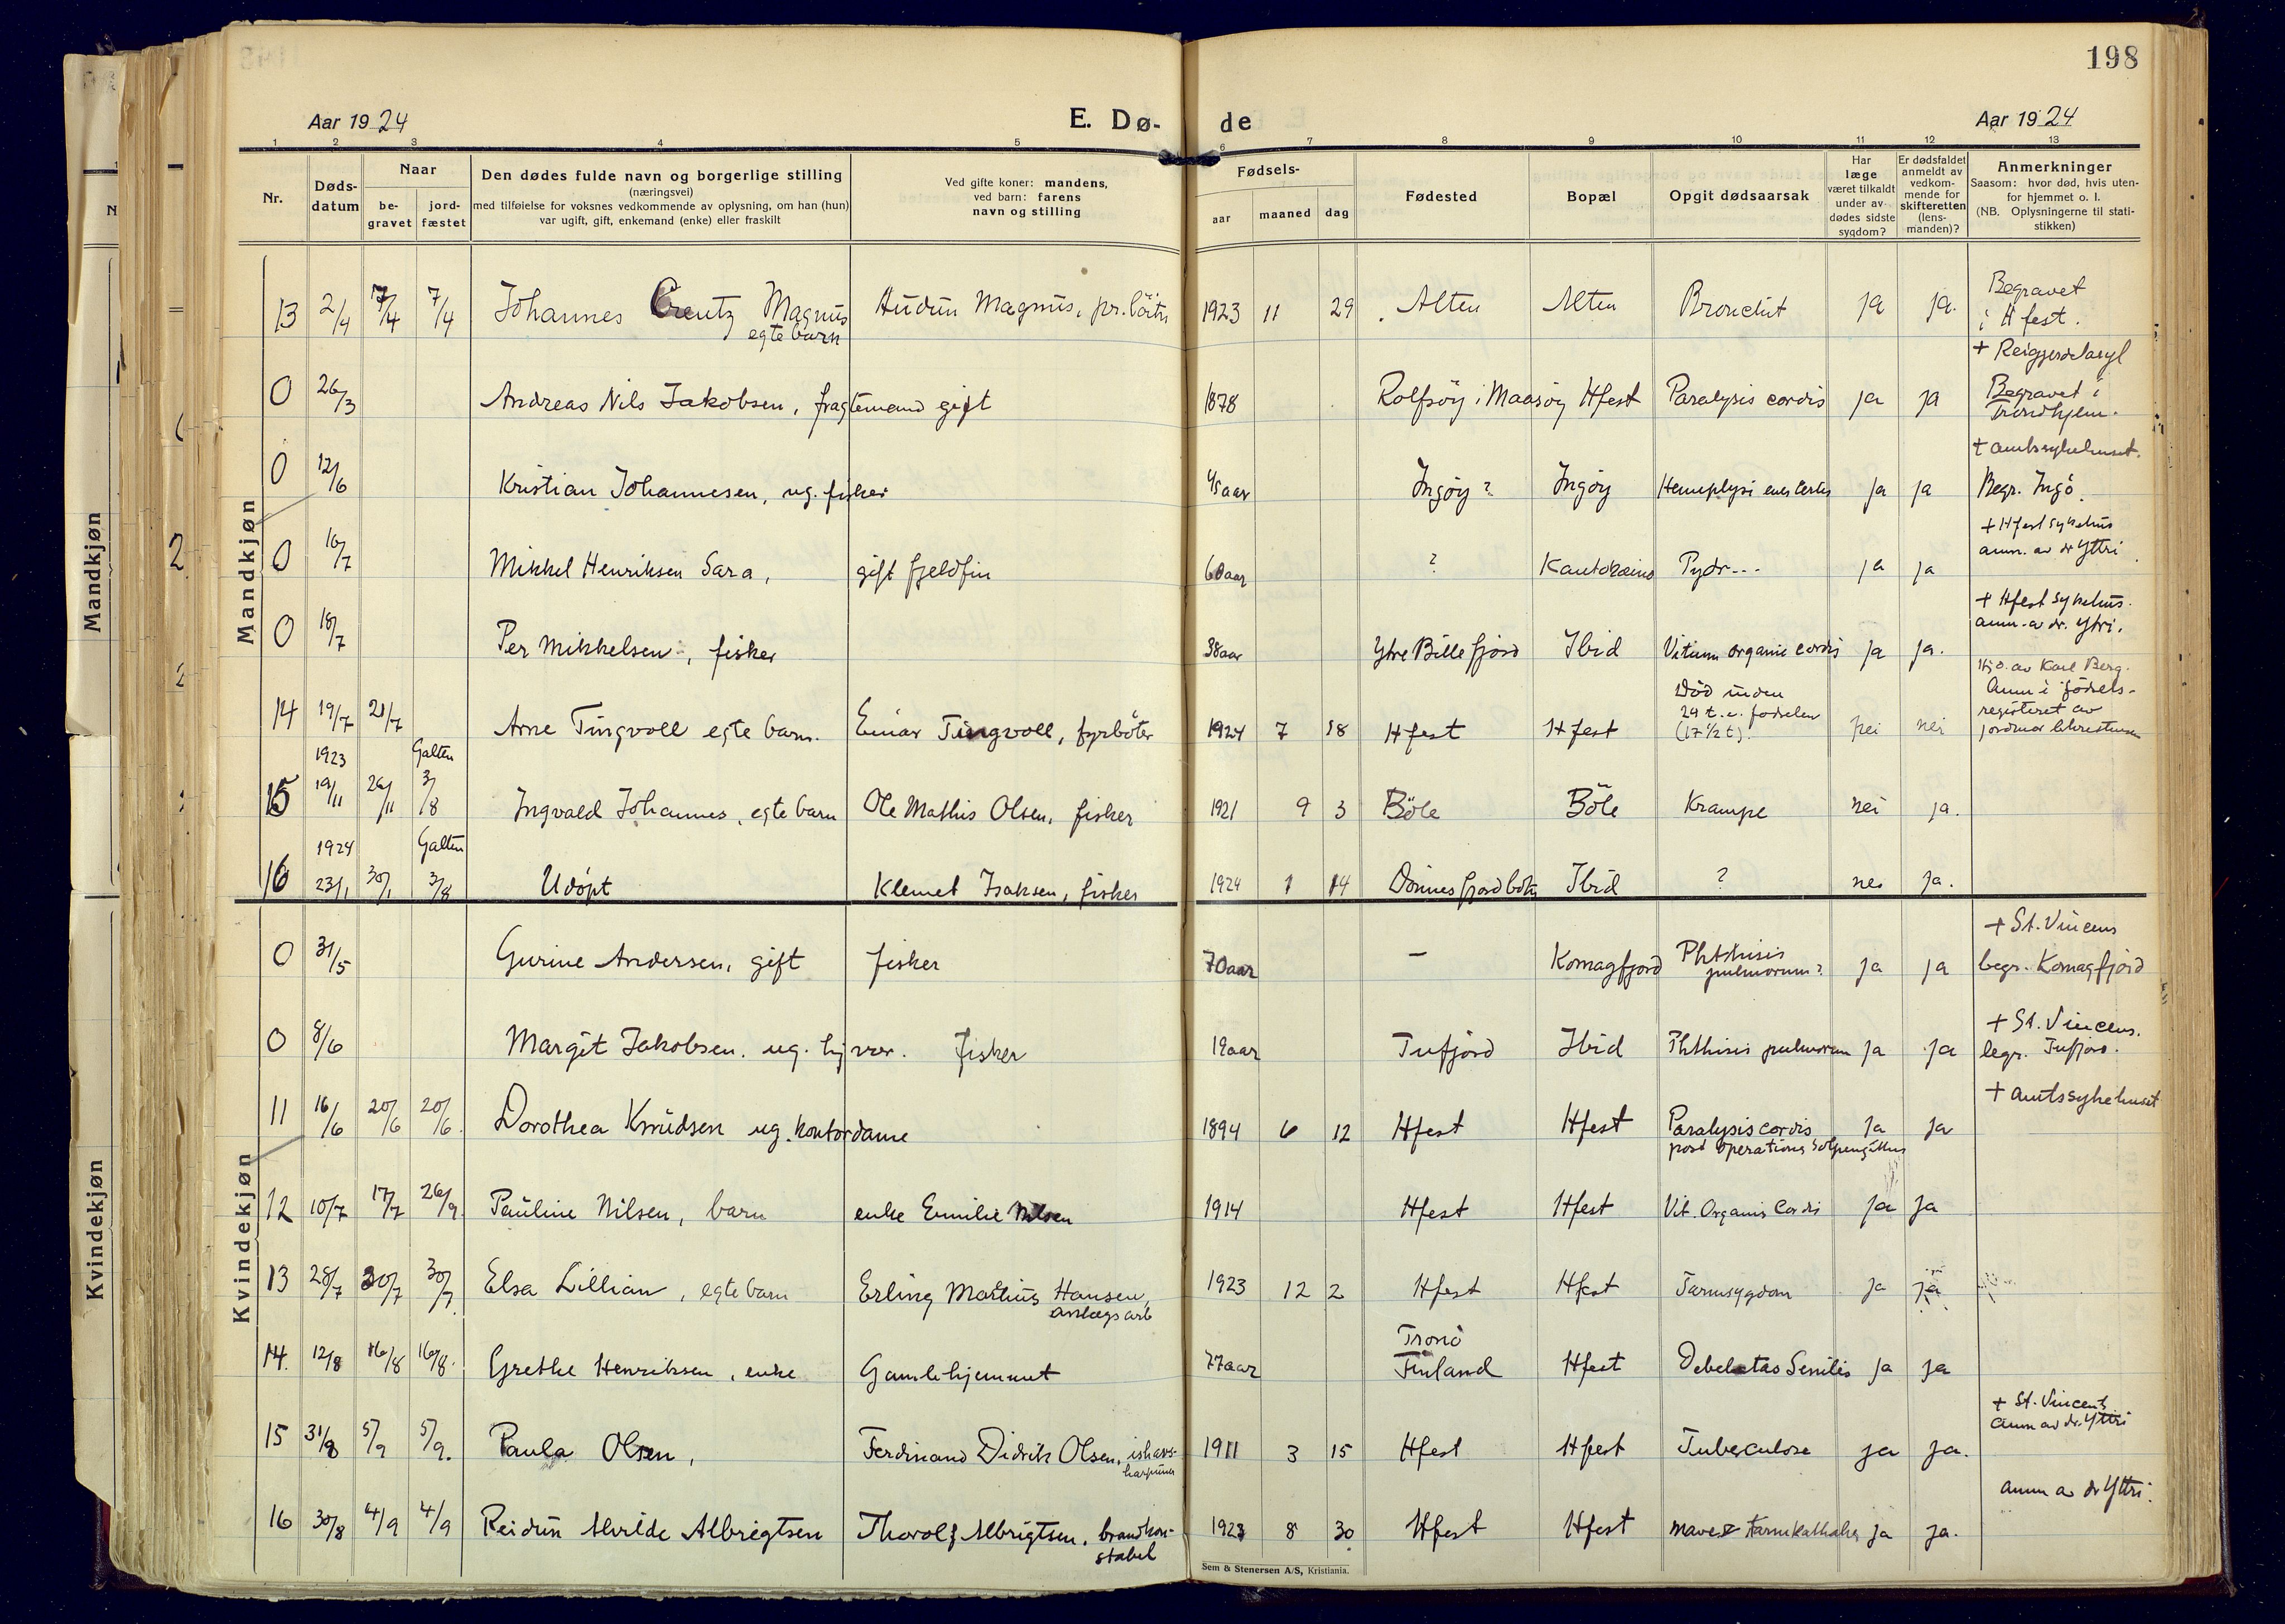 198
Aar 1924
E. Dø-
de
Aar 1924
1 2 3 4 5 6 7 8 9 10 11 12 13
Nr.
Døds-
datum
Naar
be-
gravet
jord-
fæstet
Den dødes fulde navn og borgerlige stilling
(næringsvei)
med tilføielse for voksnes vedkommende av oplysning, om han (hun)
var ugift, gift, enkemand (enke) eller fraskilt
Ved gifte koner: mandens,
ved barn: farens
navn og stilling
Fødsels-
aar maaned dag
Fødested
Bopæl
Opgit dødsaarsak
Har
læge
været tilkaldt
under av-
dødes sidste
sygdom?
Er dødsfaldet
anmeldt av
vedkom-
mende for
skifteretten
(lens-
manden)?
Anmerkninger
Saasom: hvor død, hvis uten-
for hjemmet o. l.
(NB. Oplysningerne til stati-
stikken)
Mandkjøn
Mandkjøn
13 2/4 7/4 7/4 Johannes Creutz Magnus Audun Magnus, 1923 11 29 Alten Alten Bronchit ja ja. Begravet
egte barn i Hfest.
+ 
0 26/3 Andreas Nils Jakobsen, fragtemand gift 1878 Rolfsöy i Maasöy Hfest Paralysis cordis ja ja Begravet i
Trondhjem.
+ amtssykehuset.
0 12/6 Kristian Johannesen, ug. fisker 45 aar Ingöy? Ingöy ja ja Begr. Ingö.
+ Hfest sykehus
anm. av dr Yttri
0 16/7 Mikkel Henriksen Sara, gift fjeldfin 60 aar ? Kautokeino Pydr--- ja ja
+ Hfest sykehus.
anm. av dr. Ytri.
0 18/7 Per Mikkelsen, fisker 38 aar Ytre Billefjord Ibid Vitium organic cordis ja ja.
Hj.d. av Karl Berg.
Død inden Anm i fødsels-
24 t. e. fødselen registeret av
14 19/7 21/7 Arne Tingvoll egte barn. Einar Tingvoll, fyrböter 1924 7 18 Hfest Hfest (17 1/2 t)! nei nei jordmor
1923 Galten
15 19/11 26/11 3/8 Ingvald Johannes, egte barn Ole Mathis Olsen, fisker 1921 9 3 Böle Böle Krampe nei ja.
1924 Galten
16 23/1 30/1 3/8 Udöpt Klemet Isaksen, fisker 1924 1 14 Dönnesfjordbotn Ibid ? nei ja.
Kvindekjøn
Kvindekjøn
+ St. Vincens
0 31/5 Gurine Andersen, gift fisker 70 aar — Komagfjord Phthisis ja ja begr. Komagfjord
pulmorum?
+ St. Vincens.
0 8/6 Margit Jakobsen. ug. hj vær. fisker 19 aar Tufjord Ibid Phthisis pulmorum ja ja begr. Tufjord.
+ amtssykehuset
11 16/6 20/6 20/6. Dorothea Knudsen ug. kontordame 1894 6 12 Hfest Hfest Paralysis cordis ja ja
post operationis
12 10/7 17/7 26/9. Pauline Nilsen, barn enke Emilie Nilsen 1914 Hfest Hfest Vit. Organis Cordis ja ja
13 28/7 30/7 30/7. Elsa Lillian, egte barn Erling Martius Hansen, 1923 12 2 Hfest Hfest Tarmsygdom ja ja
anlægsarb
Tronö
14. 12/8 16/8 16/8. Grethe Henriksen, enke Gamlehjemmet 77 aar Finland Hfest Debeletas Senilis ja ja
+ St. Vincents
anm av dr. Yttri
15 31/8 5/9 5/9. Paula Olsen, Ferdinand Didrik Olsen, ishavs- 1911 3 15 Hfest Hfest Tuberculose ja ja.
harpuner
anm av dr Yttri.
16 30/8 4/9 4/9 Reidun Alvilde Albrigtsen Thorolf Albrigtsen, brandkon- 1923 8 30 Hfest Hfest mave & tarmkathahr ja ja.
stabel
Sem & Stenersen A/S, Kristiania.